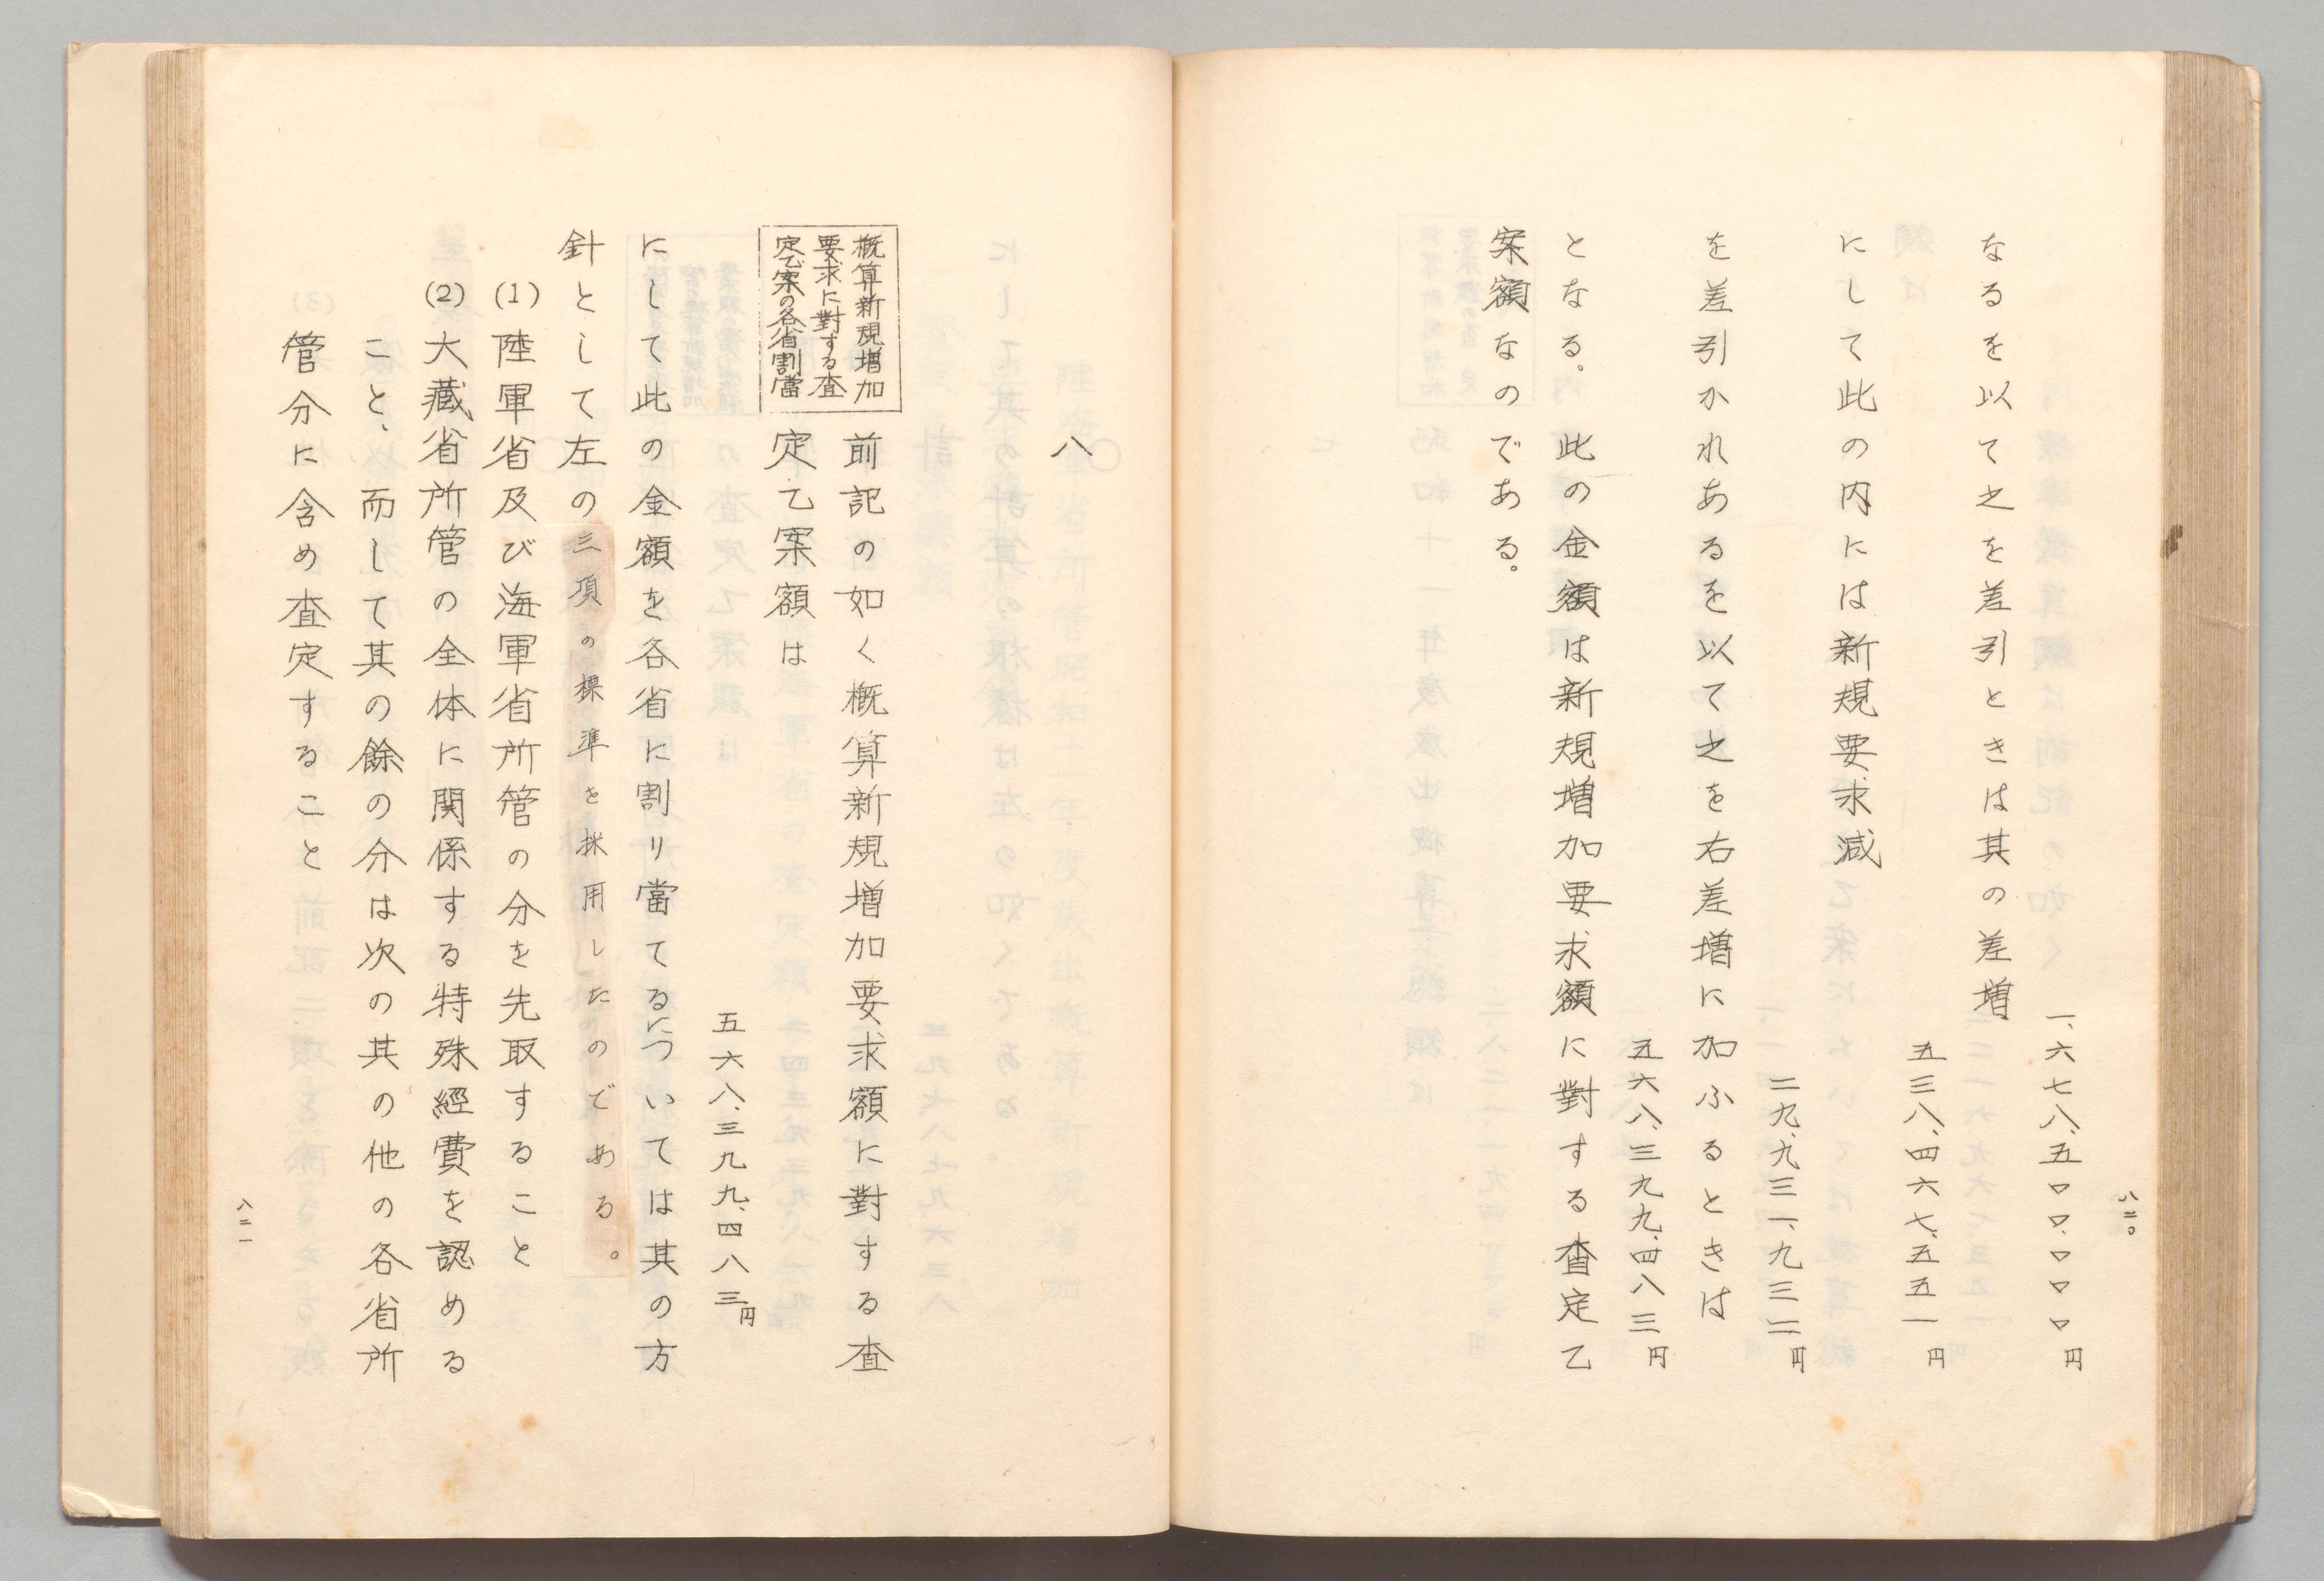 八二〇
一、六七八、五〇〇、〇〇〇円
なるを以て之を差引ときは其の差増
五三八、四六七、五五一円
にして此の内には新規要求減
二九、九三一、九三二円
を差引かれあるを以て之を右差増に加ふるときは
五六八、三九九、四八三円
となる。此の金額は新規増加要求額に對する査定乙
案額なのである。
八
概算新規増加
要求に對する査
定乙案の各省割當
前記の如く概算新規増加要求額に對する査
定乙案額は
五六八、三九九、四八三円
にして此の金額を各省に割り當てるについては其の方
針として左の三項の標準を採用したのである。
(1)陸軍省及び海軍省所管の分を先取すること
(2)大藏省所管の全体に関係する特殊經費を認める
こと、而して其の餘の分は次の其の他の各省所
管分に含め査定すること
八二一